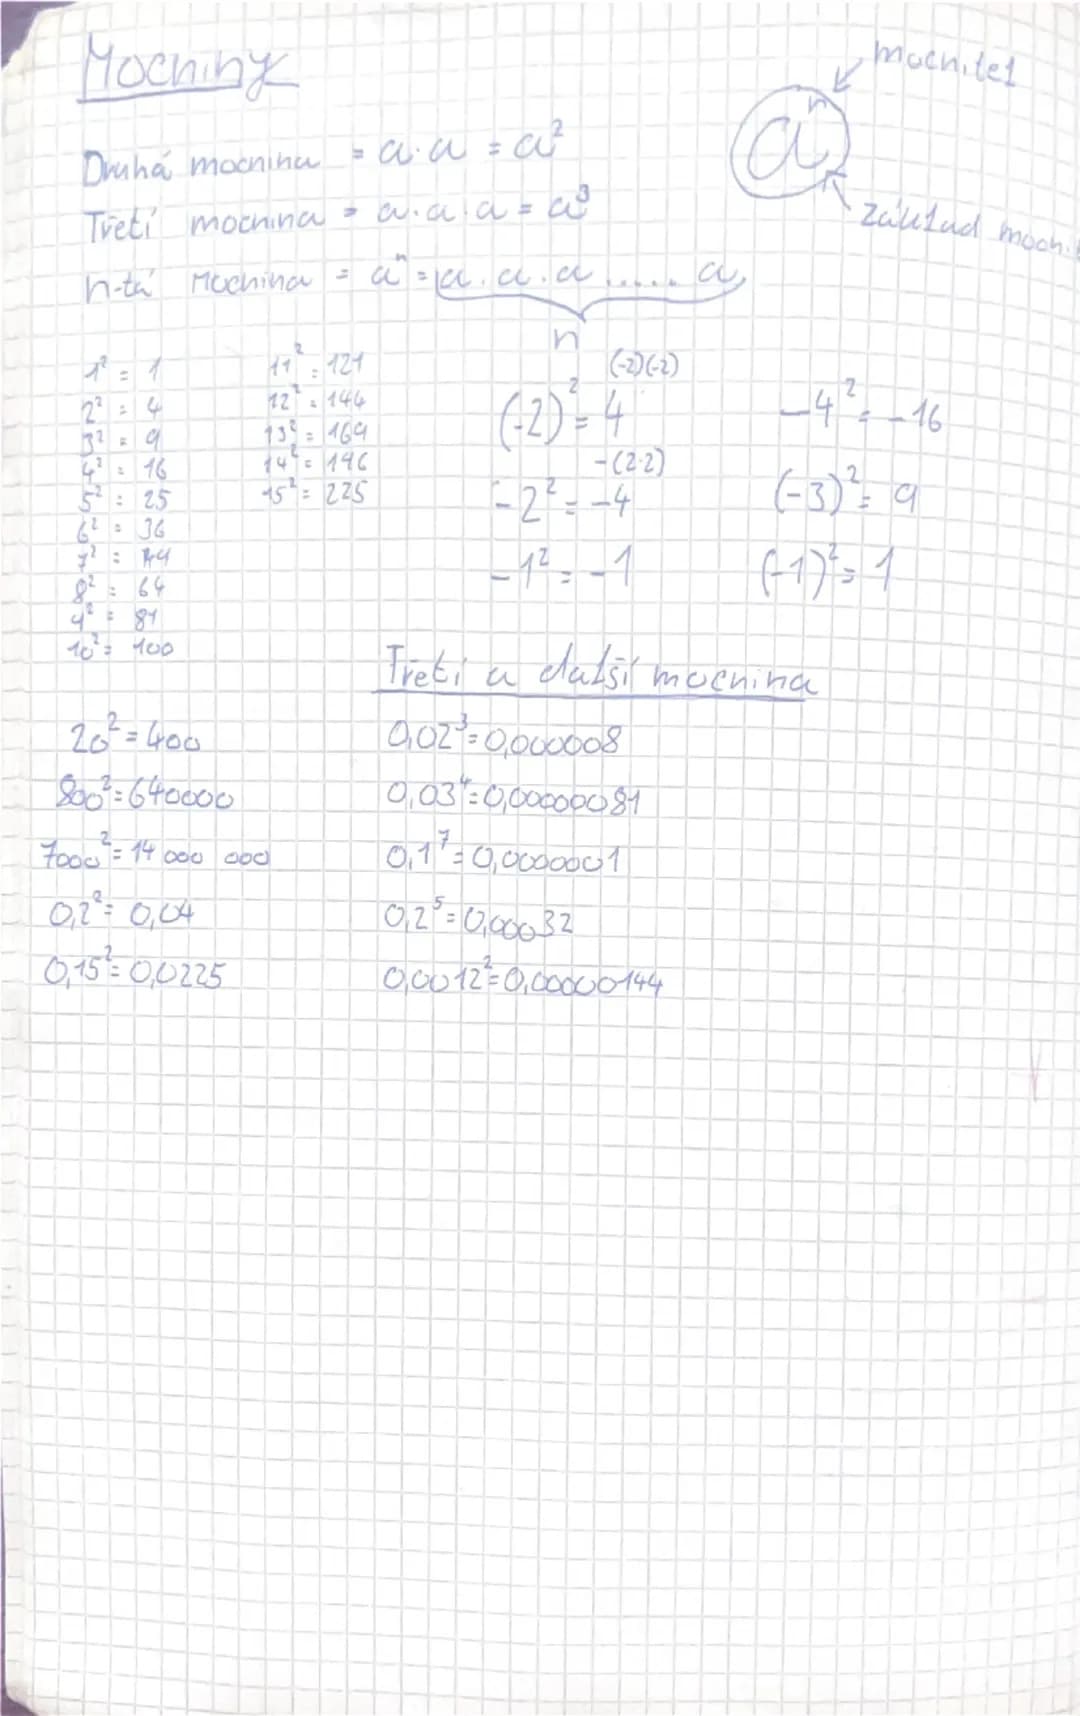 Mocniny
mocnitel
aⁿ
základ mocni
Druhá mocnina = a·a = a²
Třetí mocnina = a.a.a = a³
n-tá Mocnina = aⁿ = a.a.a ..... a
n
1² = 1
2² = 4
3² = 9
4² = 16
5² = 25
6² = 36
7² = 49
8² = 64
9² = 81
10² = 100
11² = 121
12² = 144
13² = 169
14² = 196
15² = 225
(-2)(-2)
(-2)² = 4
-(2·2)
-2² = -4
-1² = -1
-4² = -16
(-3)² = 9
(-1)² = 1
20² = 400
800² = 640000
7000² = 14 000 000
0,2² = 0,04
0,15² = 0,0225
Třetí a další mocnina
0,02³ = 0,000008
0,03⁴ = 0,00000081
0,1⁷ = 0,0000001
0,2⁵ = 0,00032
0,0012² = 0,00000144